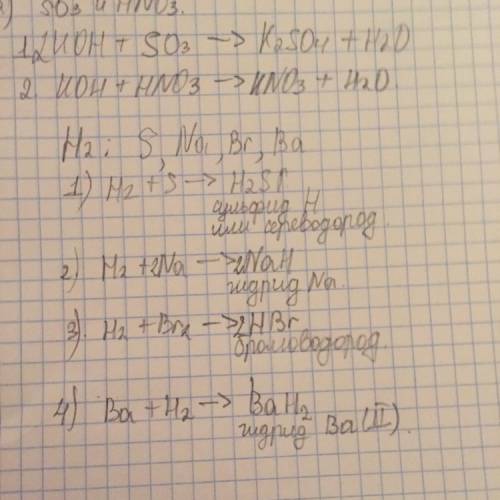 2) SO3 и HNO3.
1. 2KOH + SO3 → K2SO4 + H2O
2. KOH + HNO3 → KNO3 + H2O
H2: S, Na, Br, Ba
1) H2 + S → H2S↑
сульфид H
или сероводород.
2) H2 + 2Na → 2NaH
гидрид Na.
3). H2 + Br2 → 2HBr
бромоводород.
4) Ba + H2 → BaH2
гидрид Ba(II).